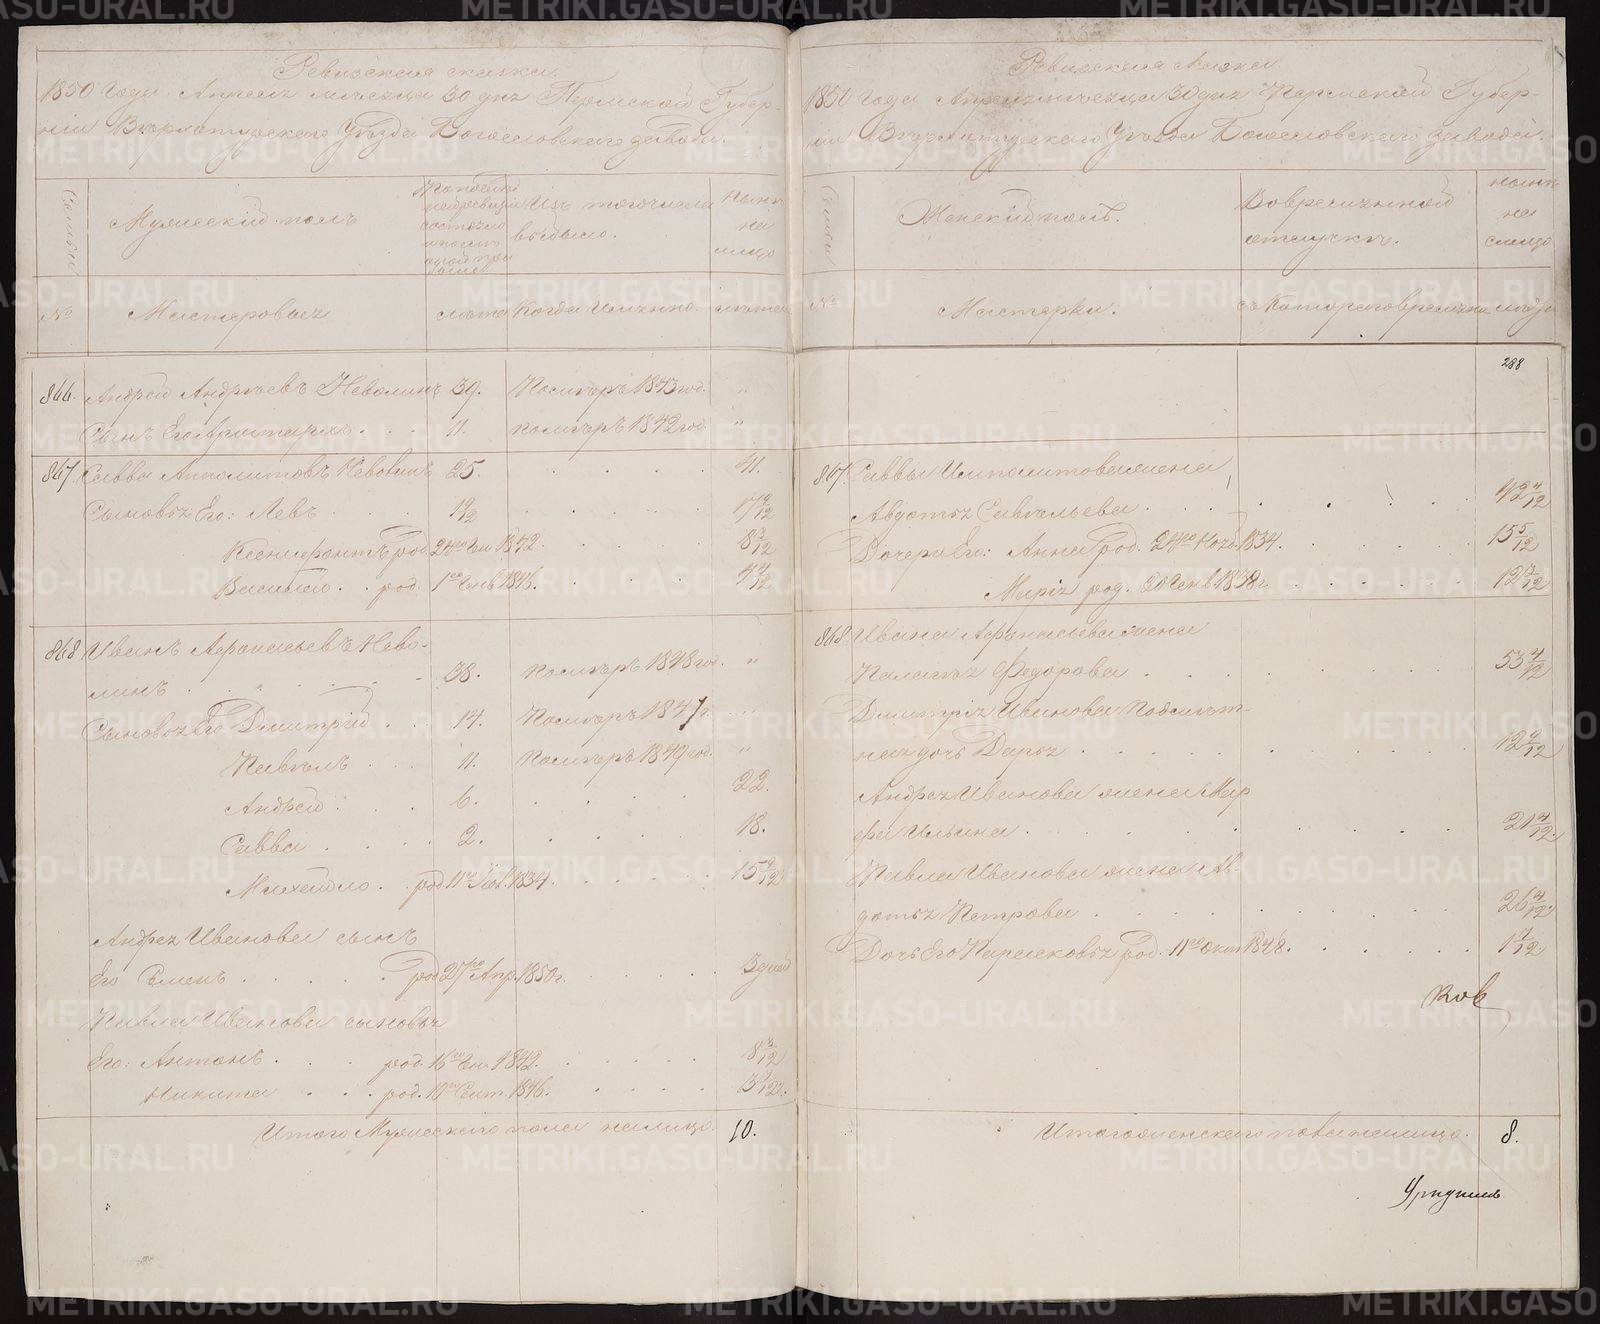 Ревизская сказка.
1850 Года Апреля месяца 30 дня Пермской Губер-
нии Верхотурскаго Уезда Богословскаго завода.
Семьи
Мужеский полъ
По последней ревизии состояло и после оной при было
Изъ того числа выбыло.
Ныне на лицо
№
Мастеровые
лета
Когда Именно.
лета
866. Андрей Андреевъ Неволинъ 39. Померъ 1843 год. "
Сынъ Его Аристархъ . . . 11. померъ 1842 год. "
867. Савва Ипполитовъ Неволинъ 25. . . . . 41.
Сыновья Его: Левъ . . . . . 17 9/12
Ксенофонтъ род. 24го Ген. 1842. . . . 8 3/12
Василий . . род. 1го Генв. 1846. . . . 4 4/12
868 Иванъ Афанасьевъ Нево-
линъ . . . . . 38. Померъ 1848 год. "
Сыновья Его Дмитрий . . . 14. Померъ 1847 г. "
Павелъ . . . 11. Померъ 1849 год. "
Андрей . . . 6. . . . . 22.
Савва . . . . 2. . . . . 18.
Михайло . . род. 11го 1834. . . . . 15 9/12
Андрея Иванова сынъ
Его Семенъ . . . . . род. 27го Апр. 1850 г. . . . . 3 дней
Павла Иванова сыновья
Его: Антонъ . . . род. 16го Ген. 1842. . . . . 8 3/12
Никита . . . род. 10го Сент. 1846. . . . . 3 7/12.
Итого Мужескаго пола налицо. 10.
Ревизская сказка
1850 Года Апреля месяца 30 дня Пермской Губер-
нии Верхотурскаго Уезда Богословскаго завода.
Семьи
Женский полъ.
Во временной отлучке.
Ныне на лицо
№
Мастерки.
съ Котораго времени
лета
288
867 Саввы Ипполитова жена
Авдотья Савельева . . . . . 42 4/12
Дочери Его: Анна род. 24го Нояб. 1834. . . . 15 5/12
Марья род. Генв. 1838 г. . . . . 12 3/12
868 Ивана Афанасьева жена
Палагья Федорова . . . . . 53 4/12
Дмитрия Иванова Подсмет-
ная дочь Дарья . . . . . 12 4/12
Андрея Иванова жена Мар
фа Ильина . . . . . 21 4/12.
Павла Иванова жена Ав-
дотья Петрова . . . . . 26 4/12.
Дочь Его Парасковья род. 11го Окт. 1848. . . . . 1 7/12
Итого женскаго пола налицо. 8.
METRIKI.GASO-URAL.RU